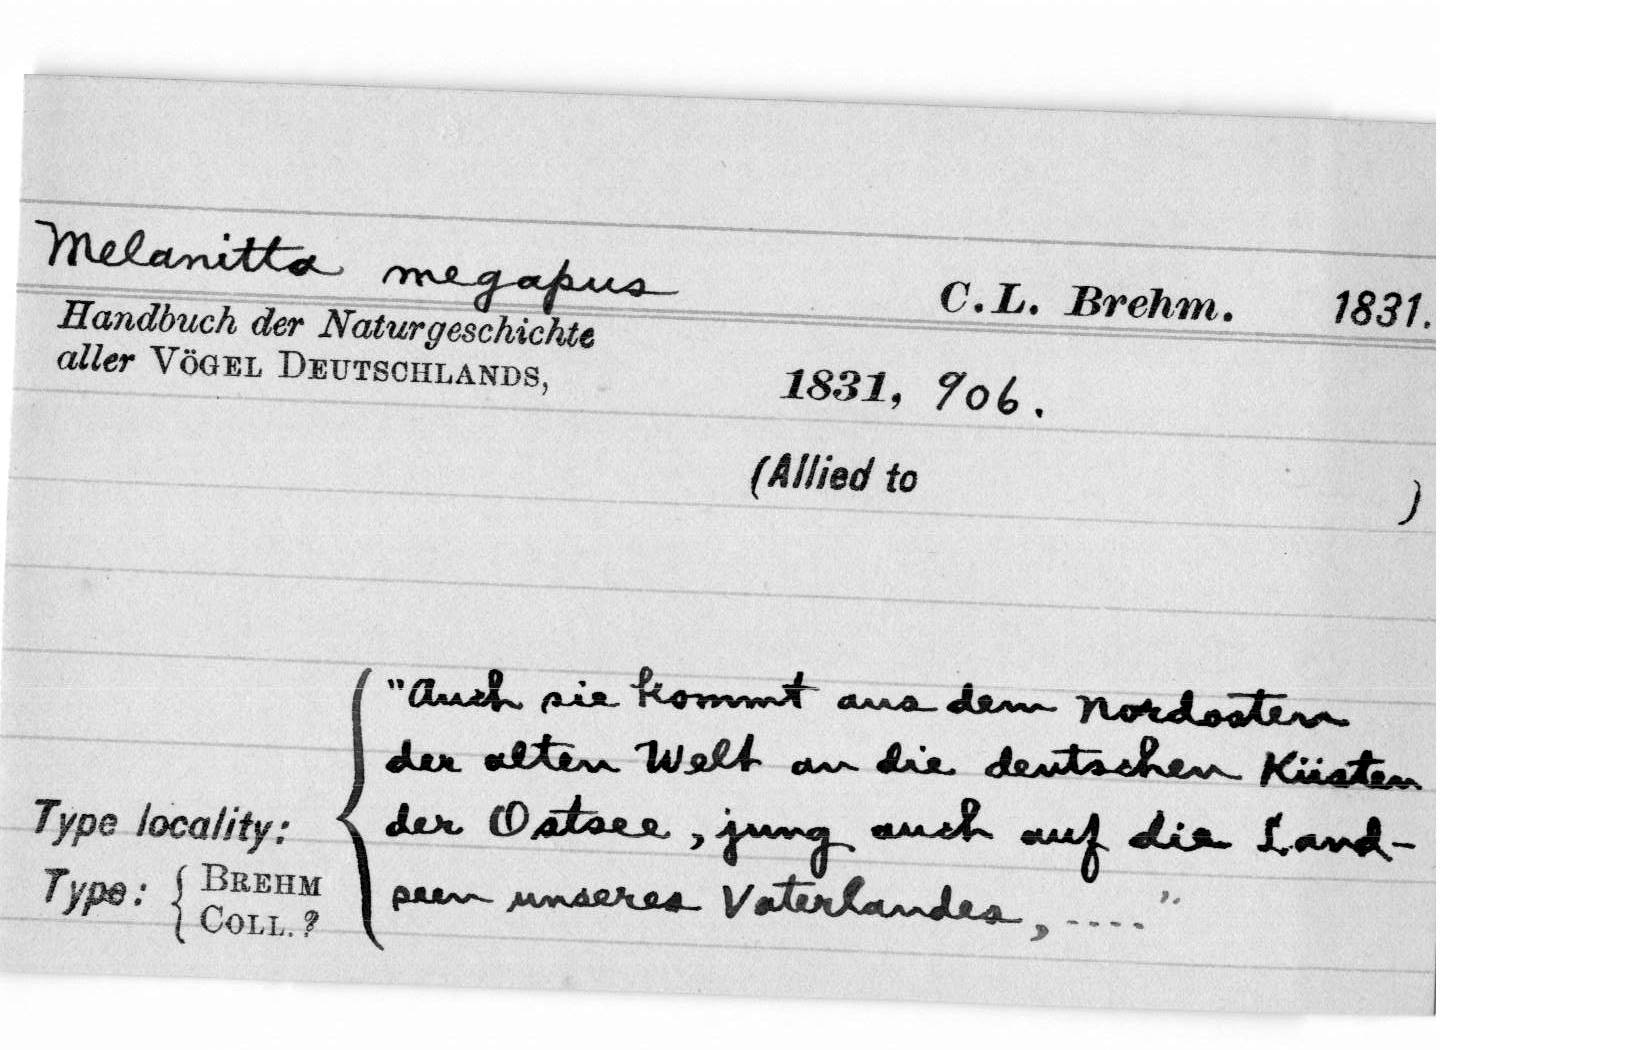 Melanitta megapus C.L. Brehm. 1831.
Handbuch der Naturgeschichte
aller VÖGEL DEUTSCHLANDS, 1831, 906.
(Allied to )
"Auch sie kommt aus dem Nordosten
der alten Welt an die deutschen Küsten
Type locality: der Ostsee, jung auch auf die Land-
Type: { BREHM COLL. ? seen unseres Vaterlandes, ...."